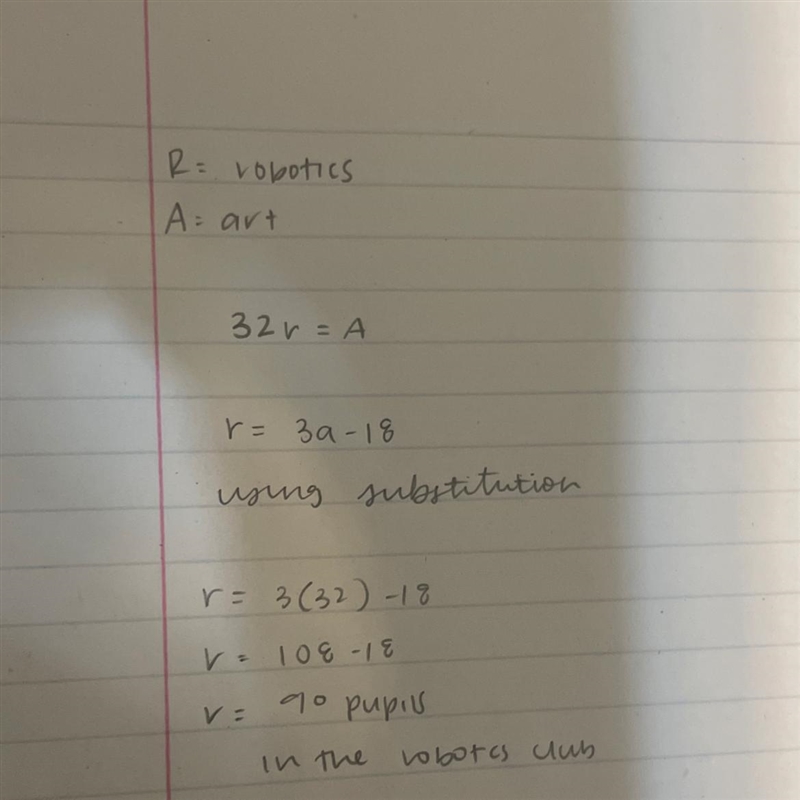 R= robotics
A= art
32r = A
r = 3a-18
using substitution
r = 3(32) -18
r = 108 -18
r = 90 pupils
in the robotcs club